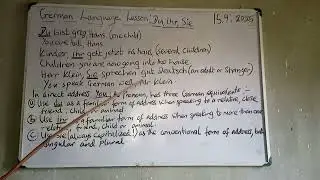 German Language Lesson Du, Ihr, Sie 15.9.2025
Du bist gros, Hans (one child)
You are tall, Hans
Kinder, ihr geht jetzt ins haus (several children)
Children, you are now going into the house
Herr Klein, Sie sprechen gut deutsch (an adult or stranger)
You speak German well, Mr Klein
In direct address You, the pronoun, has three German equivalents:-
a Use du as a familiar form of address when speaking to a relative, close
friend, child or animal
b. Use ihr familiar form of address when speaking to more than one
relative, friend, child or animal
c. Use Sie (always capitalized!) as the conventional form of address, both
singular and plural